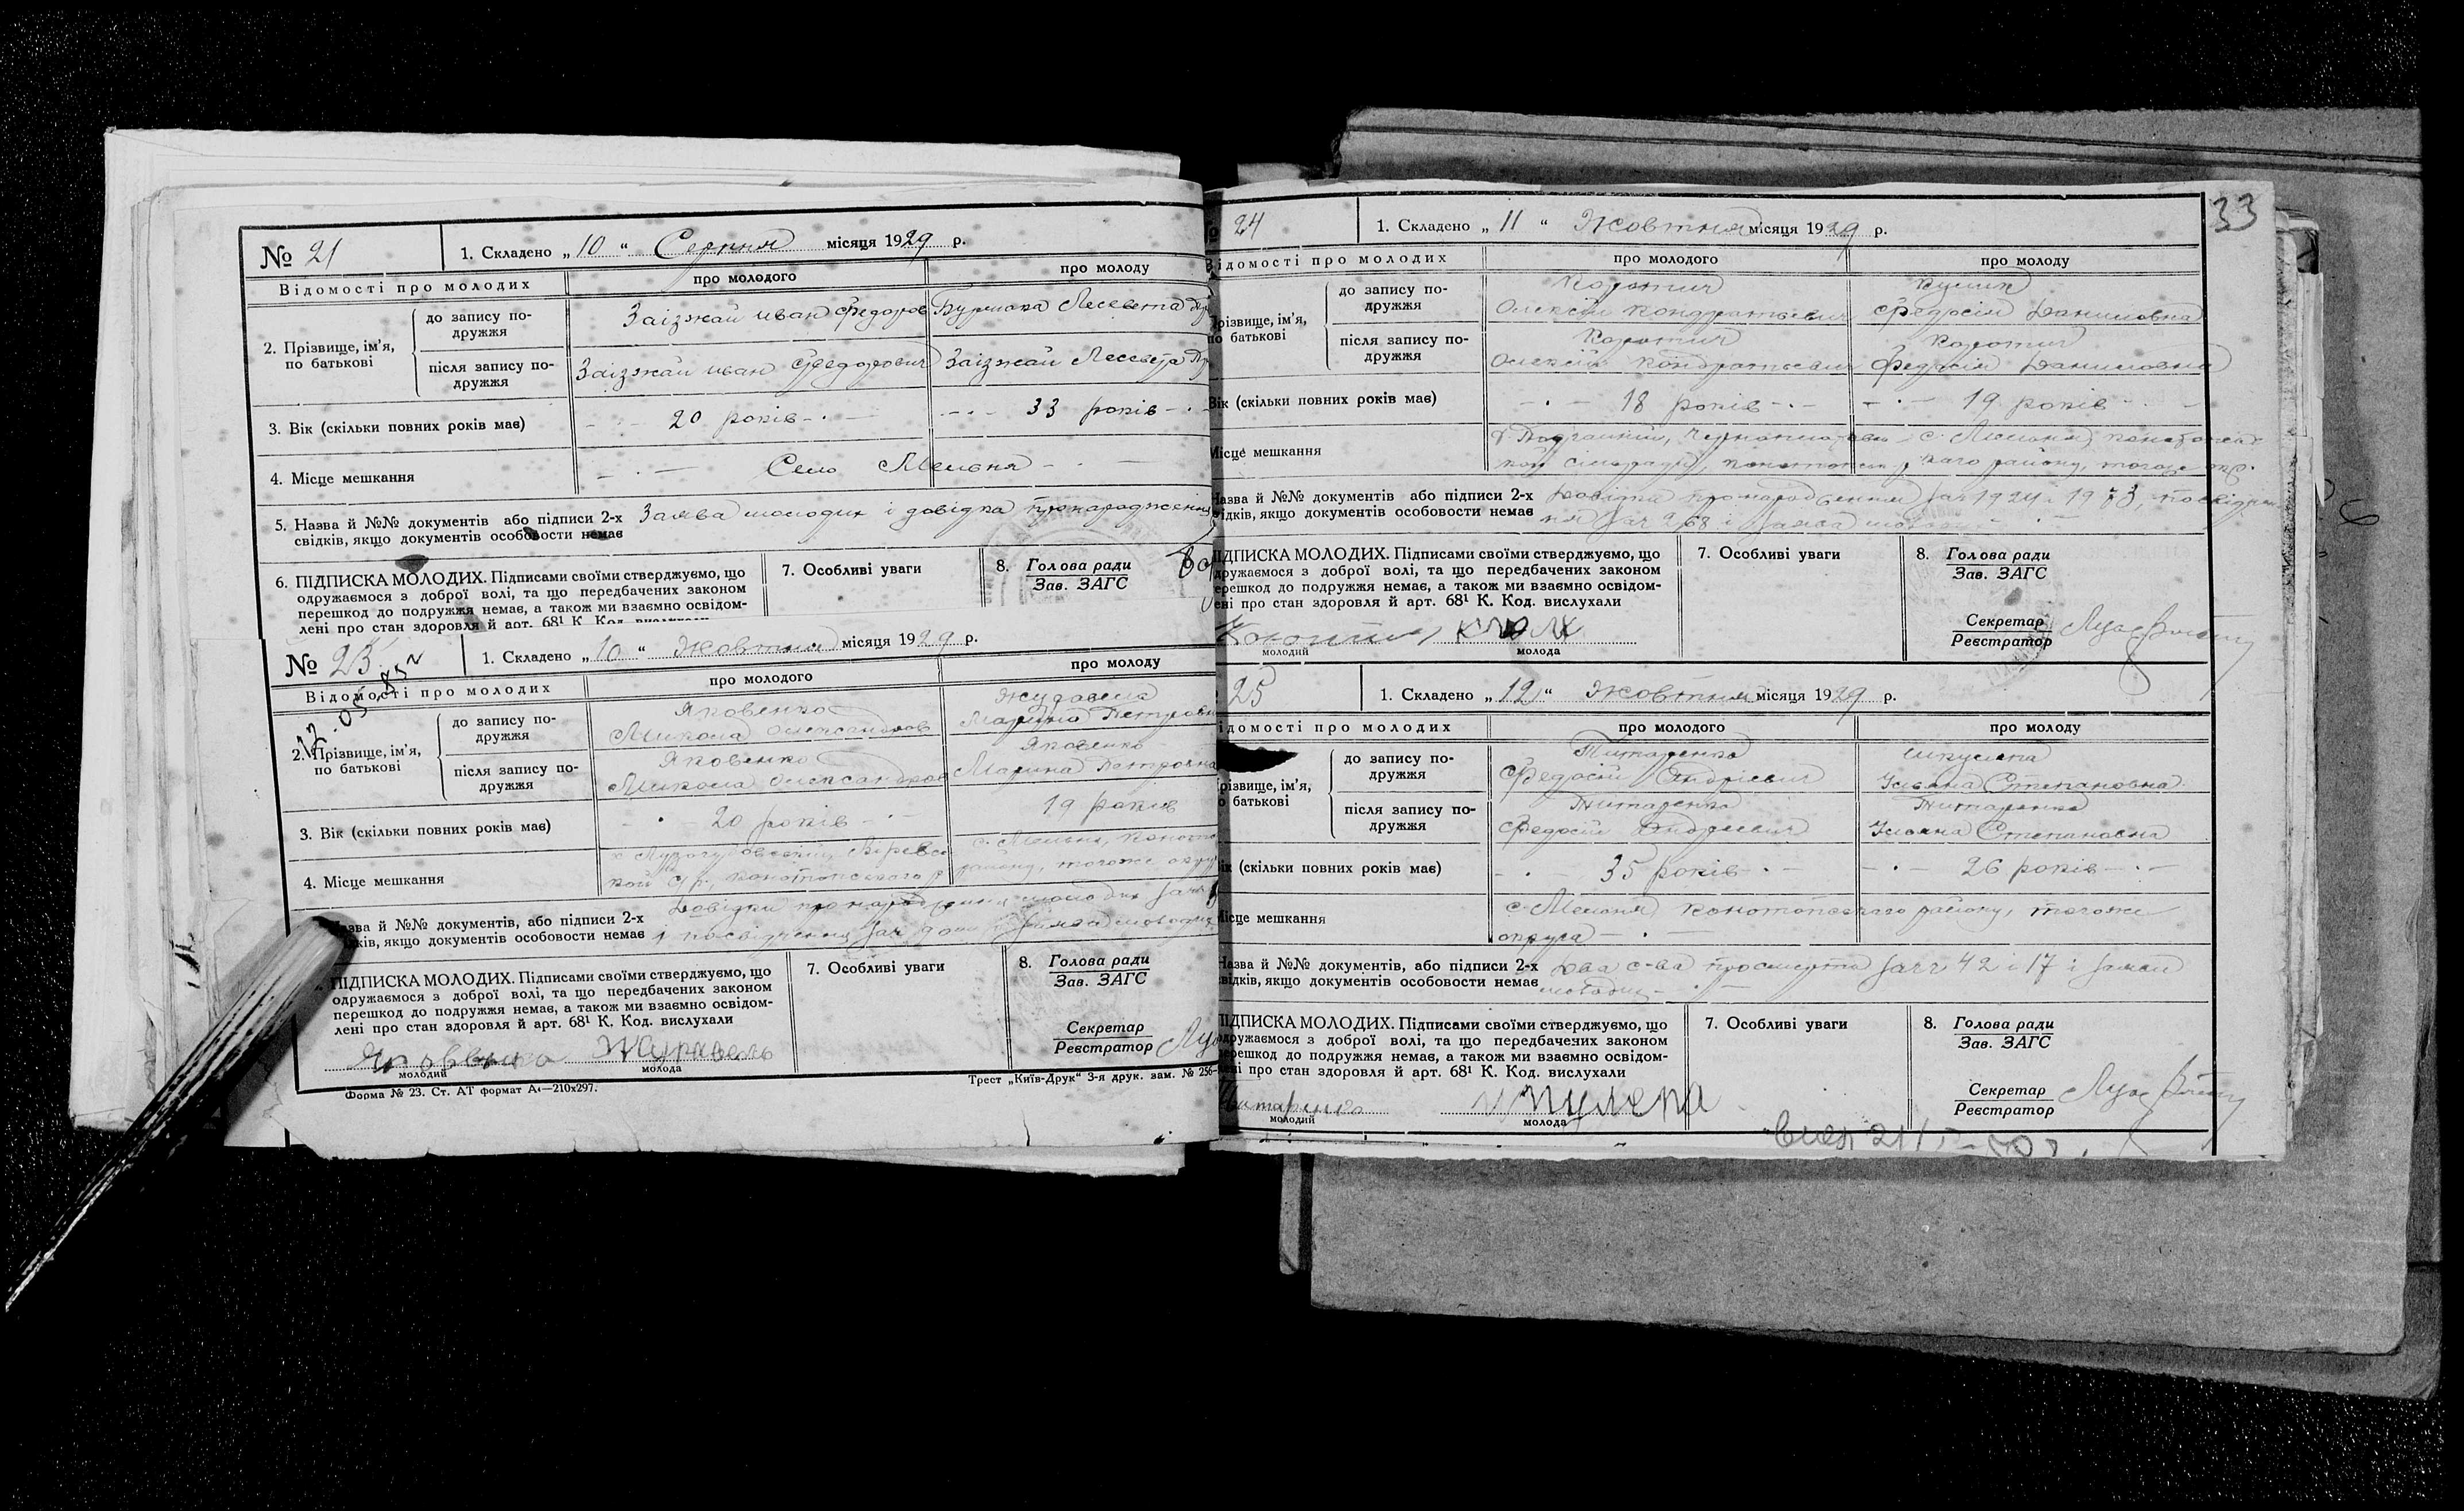 № 21
1. Складено „ 10 “ Серпня місяця 1929 р.
Відомості про молодих
про молодого
про молоду
2. Прізвище, ім’я, по батькові
до запису подружжя
Заізжай иван Федоров
Лесевета
після запису по-
дружжя
Заізжай иван Федорович
Заізжай Лесевета
3. Вік (скільки повних років має)
20 років
33 років
4. Місце мешкання
Село Мельня
5. Назва й №№ документів або підписи 2-х
свідків, якщо документів особовости немає
Заява молодих і довідка про народження
6. ПІДПИСКА МОЛОДИХ. Підписами своїми стверджуємо, що
одружаємося з доброї волі, та що передбачених законом
перешкод до подружжя немає, а також ми взаємно освідом-
лені про стан здоровля й арт. 68¹ К. Код. вислухали
7. Особливі уваги
8. Голова ради
Зав. ЗАГС
№ 23
1. Складено „ 10 “ Жовтня місяця 1929 р.
Відомості про молодих
про молодого
про молоду
2. Прізвище, ім’я,
по батькові
до запису по-
дружжя
Яковенко
Микола Олександров
Марина Петровн
після запису по-
дружжя
Яковенко
Микола Олександров
Яковенко
Марина Петровна
3. Вік (скільки повних років має)
20 років
19 років
4. Місце мешкання
с. Мельня, Коното
району, тогоже окру
Конотопського р
Назва й №№ документів, або підписи 2-х
якщо документів особовости немає
Довідки про народження молодих
ПІДПИСКА МОЛОДИХ. Підписами своїми стверджуємо, що
одружаємося з доброї волі, та що передбачених законом
перешкод до подружжя немає, а також ми взаємно освідом-
лені про стан здоровля й арт. 68¹ К. Код. вислухали
Яковенко
молодий
Журавель
молода
7. Особливі уваги
8. Голова ради
Зав. ЗАГС
Секретар
Реєстратор
Форма № 23. Ст. АТ формат А4—210х297.
Трест „Київ-Друк“ 3-я друк. зам. № 256-
33
24
1. Складено „ 11 “ Жовтня місяця 1929 р.
Відомості про молодих
про молодого
про молоду
Прізвище, ім’я,
по батькові
до запису по-
дружжя
Коротич
Олексій Кондратьевич
Кулик
Федосія Даниловна
після запису по-
дружжя
Коротич
Олексій Кондратьевич
Коротич
Федосія Даниловна
Вік (скільки повних років має)
18 років
19 років
Місце мешкання
с. Мельня
каго району, тогоже окр.
Назва й №№ документів або підписи 2-х
свідків, якщо документів особовости немає
Довідка про народження
ПІДПИСКА МОЛОДИХ. Підписами своїми стверджуємо, що
одружаємося з доброї волі, та що передбачених законом
перешкод до подружжя немає, а також ми взаємно освідом-
лені про стан здоровля й арт. 68¹ К. Код. вислухали
молодий
молода
7. Особливі уваги
8. Голова ради
Зав. ЗАГС
Секретар
Реєстратор
25
1. Складено „ 12 “ Жовтня місяця 1929 р.
Відомості про молодих
про молодого
про молоду
Прізвище, ім’я,
по батькові
до запису по-
дружжя
Титаренко
Федосій Андріевич
Уляна Степановна
після запису по-
дружжя
Титаренко
Федосій Андреевич
Титаренко
Уляна Степановна
Вік (скільки повних років має)
35 років
26 років
Місце мешкання
с. Мельня Конотопського району, тогоже
округа
Назва й №№ документів, або підписи 2-х
свідків, якщо документів особовости немає
Два с-ва 42 і 17 і заява
молодих
ПІДПИСКА МОЛОДИХ. Підписами своїми стверджуємо, що
одружаємося з доброї волі, та що передбачених законом
перешкод до подружжя немає, а також ми взаємно освідом-
лені про стан здоровля й арт. 68¹ К. Код. вислухали
Титаренко
молодий
молода
7. Особливі уваги
8. Голова ради
Зав. ЗАГС
Секретар
Реєстратор